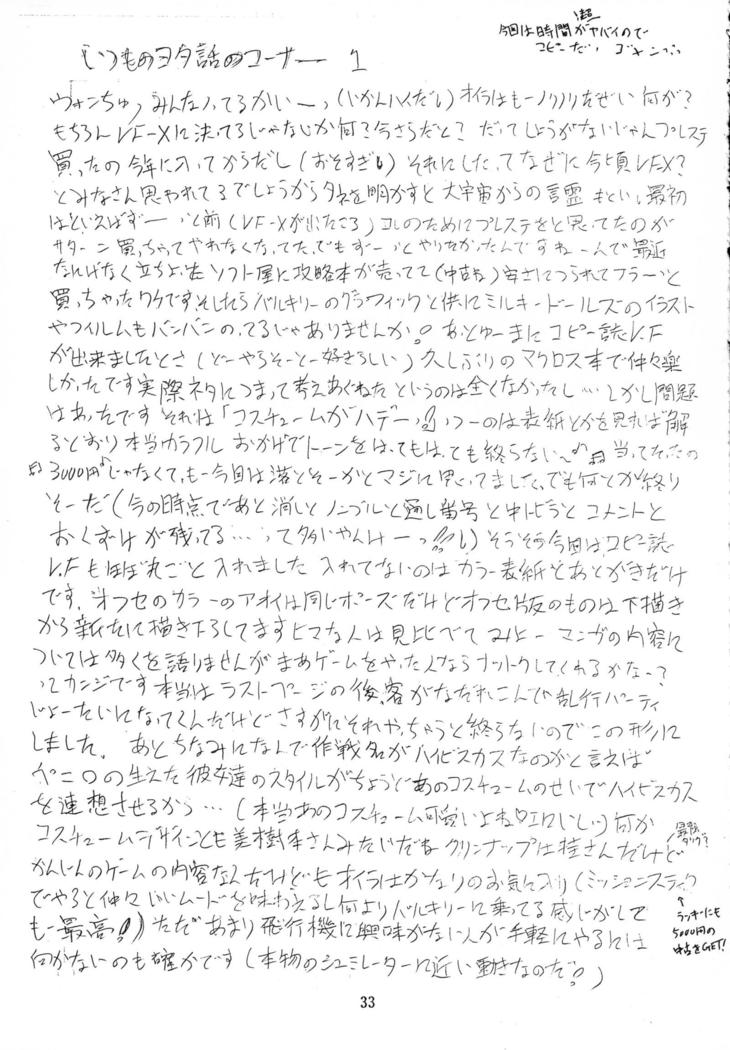 今回は時間が超ヤバイので
コピーだ、ゴメンよっ
いつものヨタ話のコーナー 1
ウォンちゅっみんなノッてるかいーっ(いかんハイだし)オイラはもーノリノリだぜい何が?
もちろんVF-Xに決ってるじゃないか何?今さらだと?だってしょうがないじゃんプレステ
買ったの今年に入ってからだし(おそすぎし)それにしたってなぜに今頃VFX?
とみなさん思われてるでしょうからタネを明かすと大宇宙からの言霊もとい、最初
はといえばずーーっと前(VF-Xが出たころ)コレのためにプレステをと思ってたのが
サターン買っちゃってやれなくなってた、でもずーっとやりたかったんですねーんで最近
なにげなく立ちよったソフト屋に攻略本が売ってて(中古な)安さにつられてフラーっと
買っちゃったワケです、そしたらバルキリーのグラフィックと供にミルキードールズのイラスト
やフィルムもバンバンのってるじゃありませんか!あっとゆーまにコピー誌V.F
が出来ましたとさ(どーやらそーとー好きらしい)久しぶりのマクロス本で仲々楽
しかったです実際ネタにつまって考えあぐねたというのは全くなかったし…しかし問題
はあったですそれは「コスチュームがハデーっ!!」っつーのは表紙とかを見れば解
るとおり本当カラフル おかげでトーンをはってもはっても終らない〜♪♬当ってくだの
♬3000円♪じゃなくて、もー今回は落とそーかとマジに思ってました、でも何とか終り
そーだ(今の時点であと消しとノンブルと通し番号と中トビラとコメントと
おくずけが残ってる…って多いやんけーっ!!し)そうそう今回はコピー誌
V.Fもほぼ丸ごと入れました 入れてないのはカラー表紙とあとがきだけ
です、オフセのカラーのアオイは同じポーズだけどオフセ版のものは下描き
から新たに描き下ろしてますヒマな人は見比べてみよー マンガの内容に
ついては多くを語りませんがまあゲームをやった人ならナットクしてくれるかなー?
ってカンジです本当はラストページの後、客がなだれこんで乱行パーティ
じょーたいになってくんだけどさすがにそれやっちゃうと終らないのでこの形に
しました。 あとちなみになんで作戦名がハイビスカスなのかと言えば
ペニ○の生えた彼女達のスタイルがちょうどあのコスチュームのせいでハイビスカス
を連想させるから…(本当あのコスチューム可愛いよね♡エロいしし)何か
コスチュームデザインとも美樹本さんみたいだねクリンナップは桂さんだけど
かんじんのゲームの内容なんだけどもオイラはかなりのお気に入り(ミッションスティック
でやると仲々いいムードを味わえるし何よりバルキリーに乗ってる感じがして
もー最高!)ただあまり飛行機に興味がない人が手軽にやるには
何かないのも確かです(本物のシュミレーターに近い動きなのだ!)
↑
ラッキーにも
5000円の
中古をGET!
33